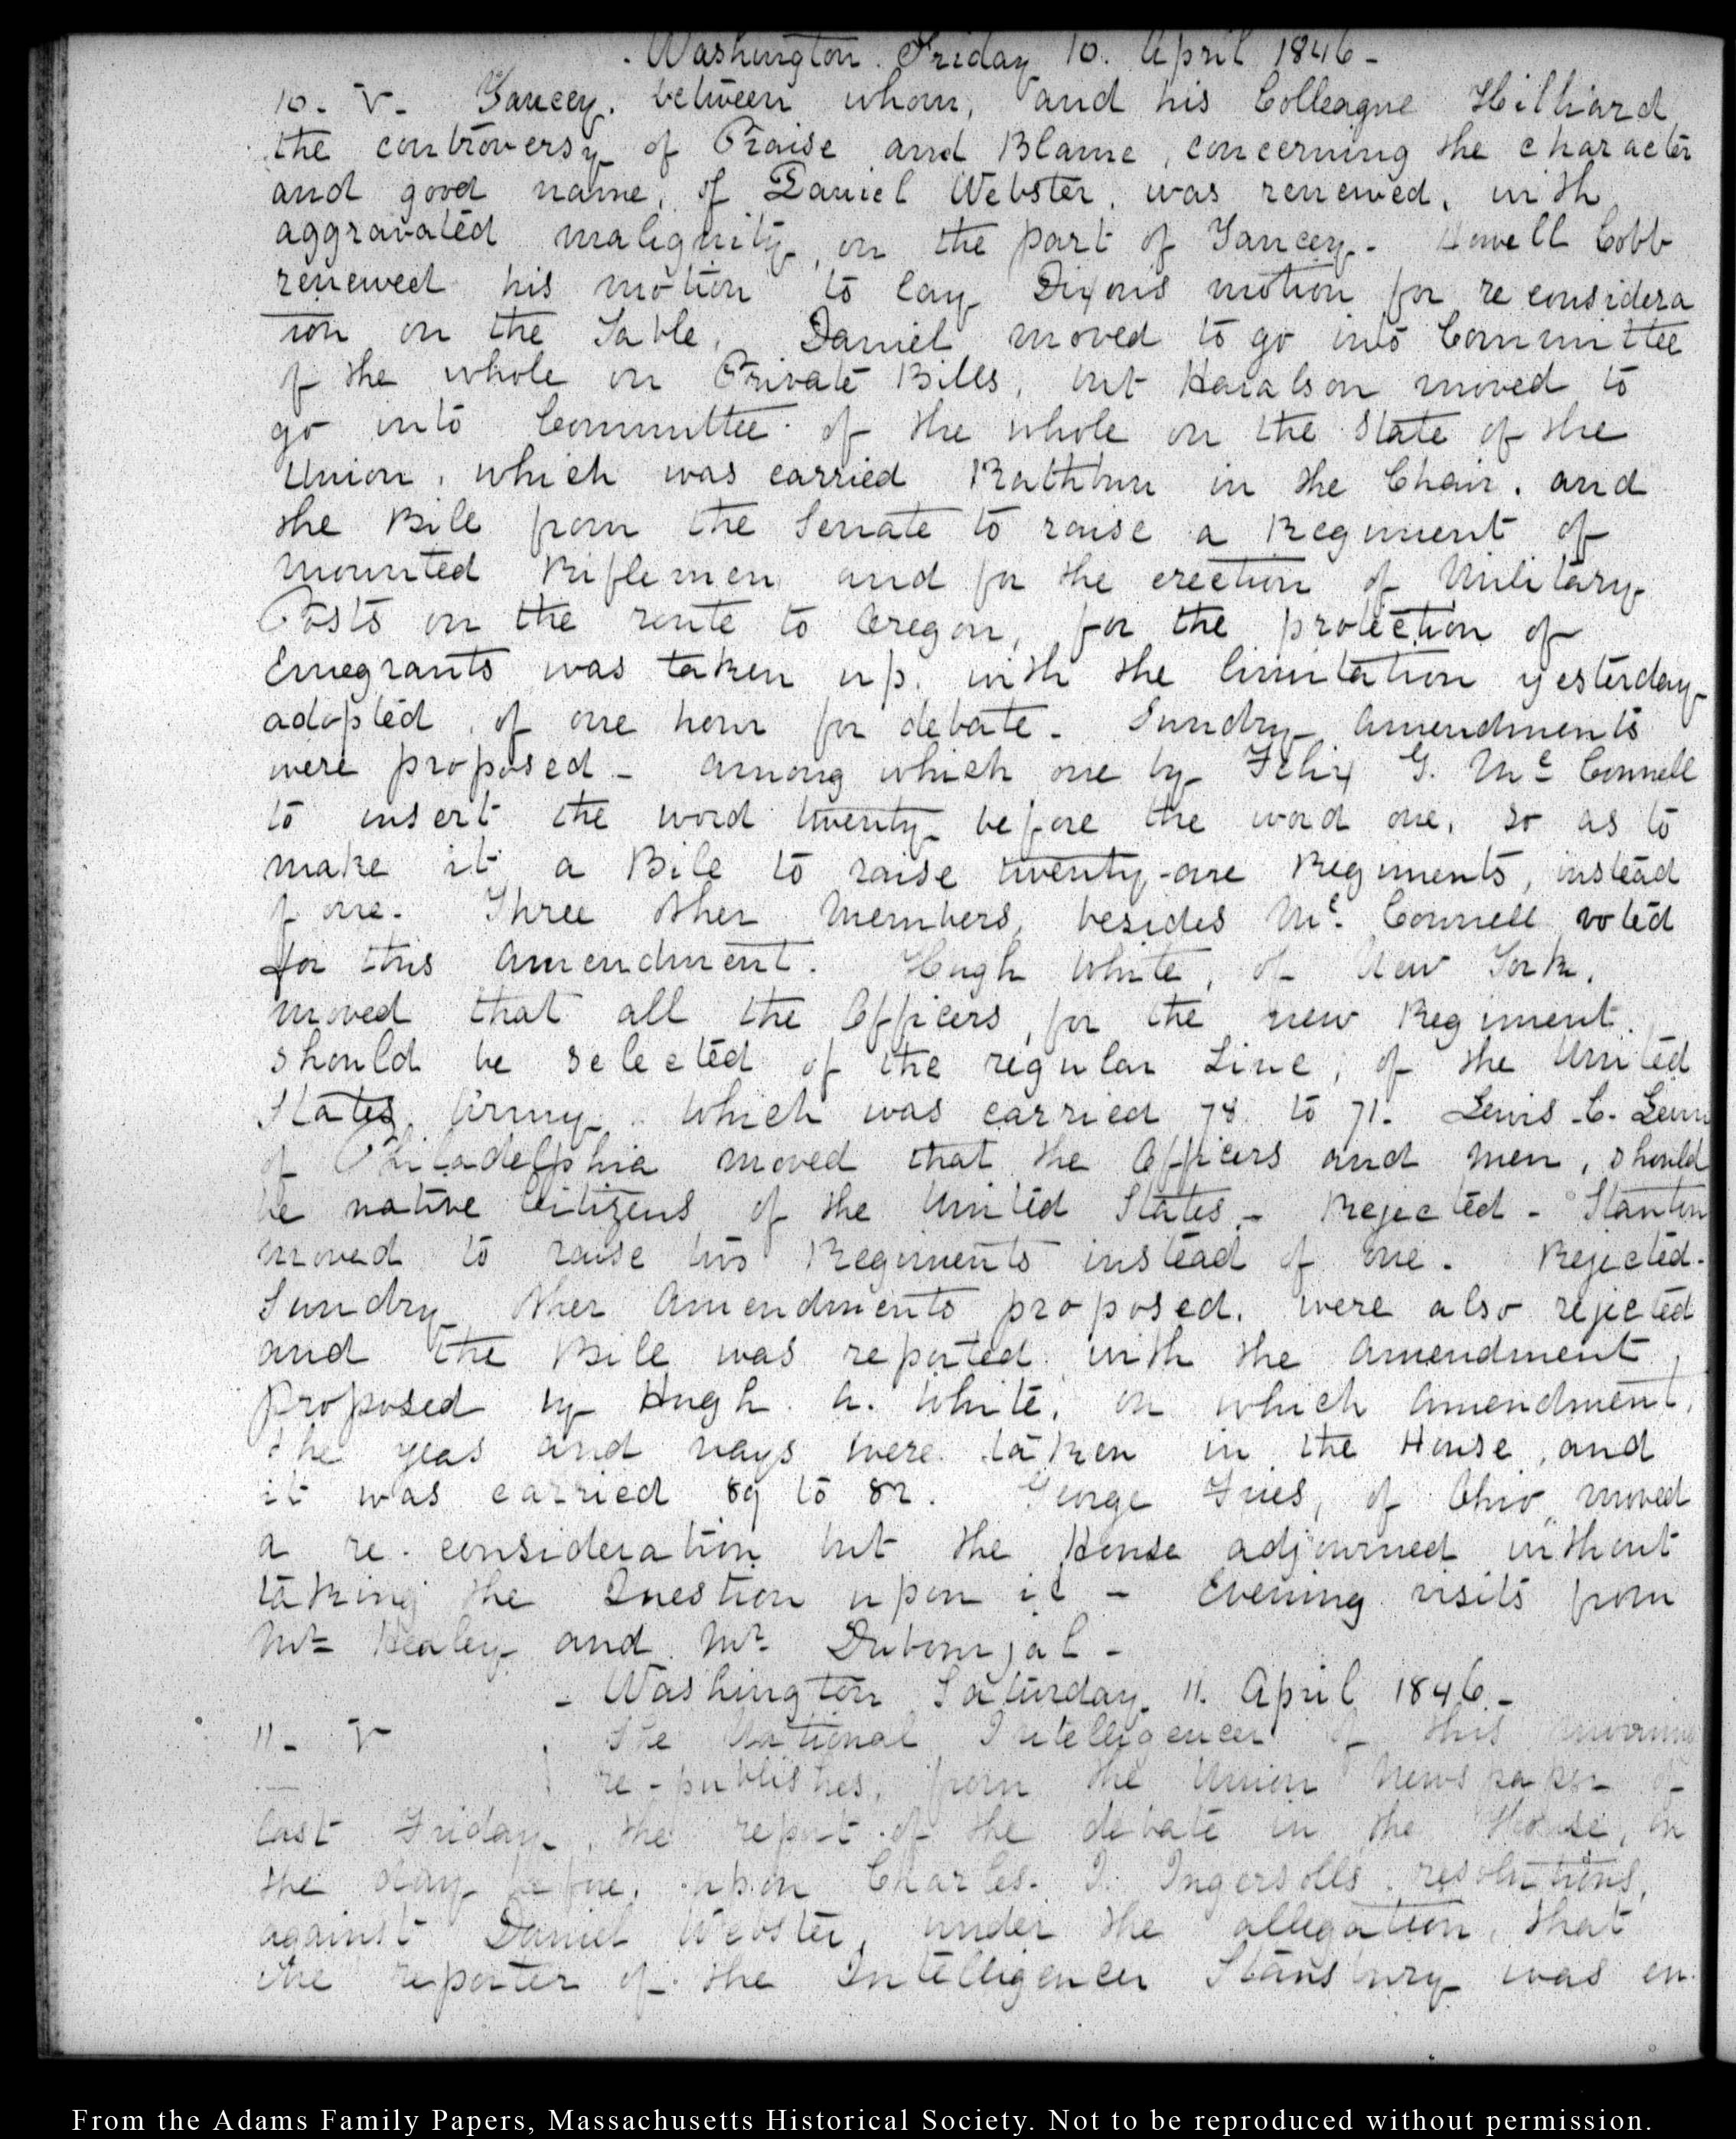 Washington Friday 10. April 1846-
10. V. Yancey. between whom, and his Colleague Hilliard
the controversy of Praise and Blame, concerning the character
and good name, of Daniel Webster, was renewed, with
aggravated malignity, on the part of Yancey. Howell Cobb
renewed his motion to lay Dixons motion for re considera
tion on the Table. Daniel moved to go into Committee
of the whole on Private Bills, but Haralson moved to
go into Committee of the whole on the State of the
Union, which was carried Rathbun in the Chair. and
the Bill from the Senate to raise a Regiment of
mounted Riflemen and for the erection of Military
Posts on the route to Oregon, for the protection of
Emegrants was taken up. with the limitation yesterday
adopted, of one hour for debate. Sundry amendments
were proposed - among which one by Felix G. McConnell
to insert the word twenty before the word one, so as to
make it a Bill to raise twenty-one Regiments, instead
of one. Three other Members, besides Mc.Connell voted
for this amendment. Hugh White, of New York,
moved that all the Officers, for the new Regiment.
should be selected of the regular Line, of the United
States, Army. which was carried 78 to 71. Lewis C. Levin
of Philadelphia moved that the Officers and men, should
be native Citizens of the United States - Rejected - Stanton
moved to raise two Regiments instead of one. Rejected.
Sundry other Amendments proposed, were also rejected
and the Bill was reported with the Amendment,
proposed by Hugh A. White, on which Amendment,
the yeas and nays were taken in the House, and
it was carried 89 to 82. George Fries, of Ohio, moved
a re-consideration but the House adjourned without
taking the Question upon it - Evening visits from
Mr Healey and Mr Dubourjal -
- Washington Saturday 11. April 1846 -
11. V The National Intelligencer of this morning
re-publishes, from the Union Newspaper of
last Friday, the report of the debate in the House, on
the day before, upon Charles. J. Ingersolls resolutions,
against Daniel Webster, under the allegation, that
the reporter of the Intelligencer Stansbury was en
From the Adams Family Papers, Massachusetts Historical Society. Not to be reproduced without permission.